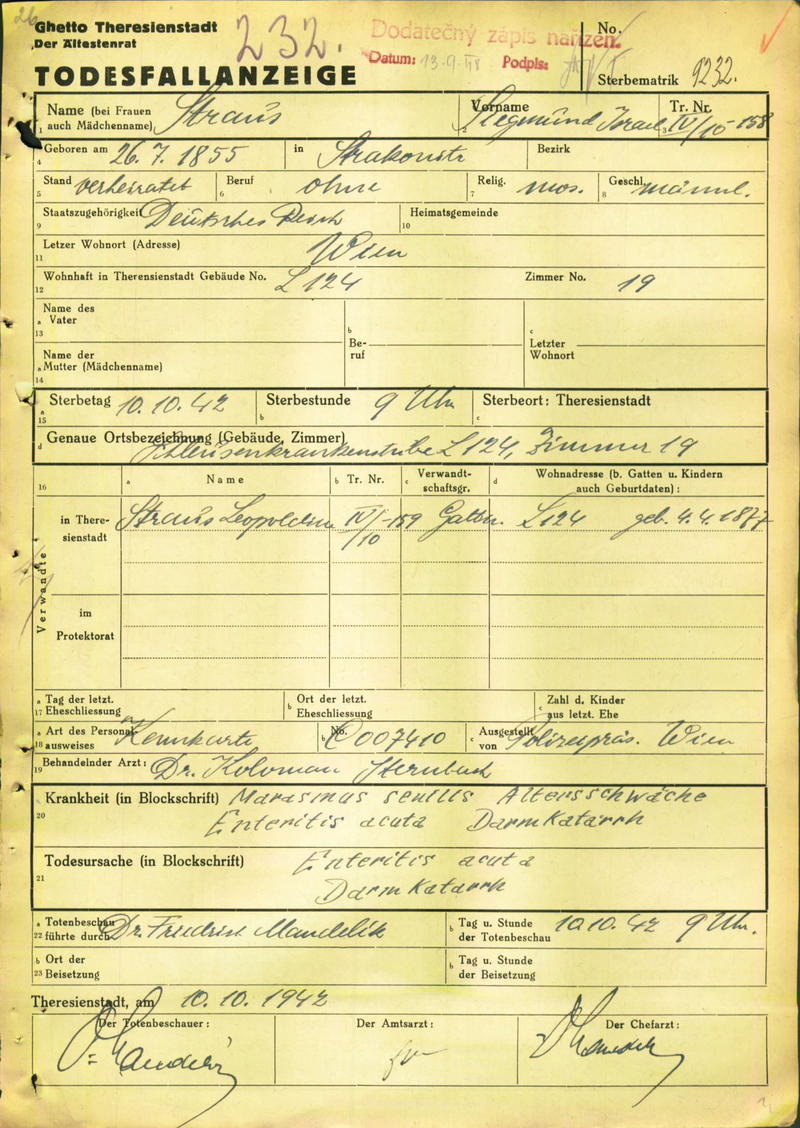 Ghetto Theresienstadt
Der Ältestenrat
232.
Dodatečný zápis nařízen.
Datum: Podpis:
No.
TODESFALLANZEIGE
Sterbematrik 9232.
Name (bei Frauen auch Mädchenname) Straus
Vorname Siegmund Israel
Tr. Nr. IV/10-158
Geboren am 26.7.1855 in Strakonitz Bezirk
Stand verheiratet Beruf ohne Relig. mos. Geschl. männl.
Staatszugehörigkeit Deutsches Reich Heimatsgemeinde
Letzer Wohnort (Adresse) Wien
Wohnhaft in Theresienstadt Gebäude No. L 124 Zimmer No. 19
Name des Vater
Beruf
Letzter Wohnort
Name der Mutter (Mädchenname)
Sterbetag 10.10.42 Sterbestunde 9 Uhr Sterbeort: Theresienstadt
Genaue Ortsbezeichnung (Gebäude, Zimmer)
L 124, Zimmer 19
Name Tr. Nr. Verwandtschaftsgr. Wohnadresse (b. Gatten u. Kindern auch Geburtdaten):
Verwandte
in Theresienstadt
Straus Leopoldine IV/10-159 Gattin. L124 geb. 4.4.1877
im Protektorat
Tag der letzt. Eheschliessung
Ort der letzt. Eheschliessung
Zahl d. Kinder aus letzt. Ehe
Art des Personalausweises Kennkarte No. C007410 Ausgestellt von Polizeipräs. Wien
Behandelnder Arzt: Dr. Koloman Sternbach
Krankheit (in Blockschrift) Marasmus senilis Altersschwäche
Enteritis acuta Darmkatarrh
Todesursache (in Blockschrift) Enteritis acuta
Darmkatarrh
Totenbeschau führte durch Dr. Friedrich Mandelik
Tag u. Stunde der Totenbeschau 10.10.42 9 Uhr.
Ort der Beisetzung
Tag u. Stunde der Beisetzung
Theresienstadt, am 10.10.1942
Der Totenbeschauer: Der Amtsarzt: Der Chefarzt: